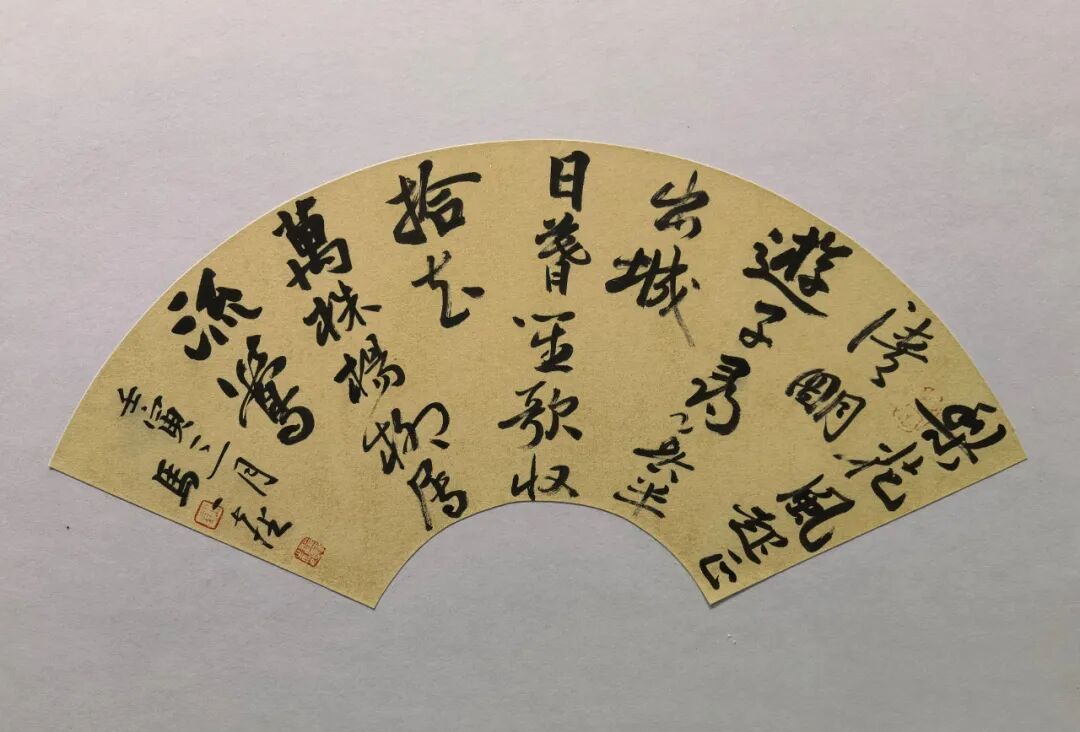 梨花風起正
清明
遊子尋春半
出城
日暮笙歌收
拾去
萬株楊柳屬
流鶯
壬寅三月
馬